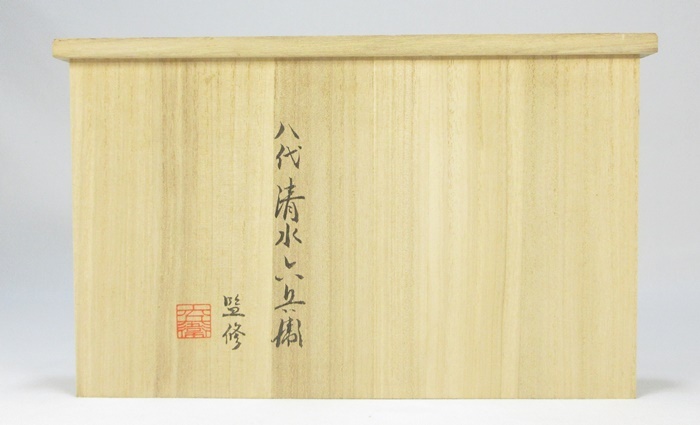 八代清水六兵衛
監修